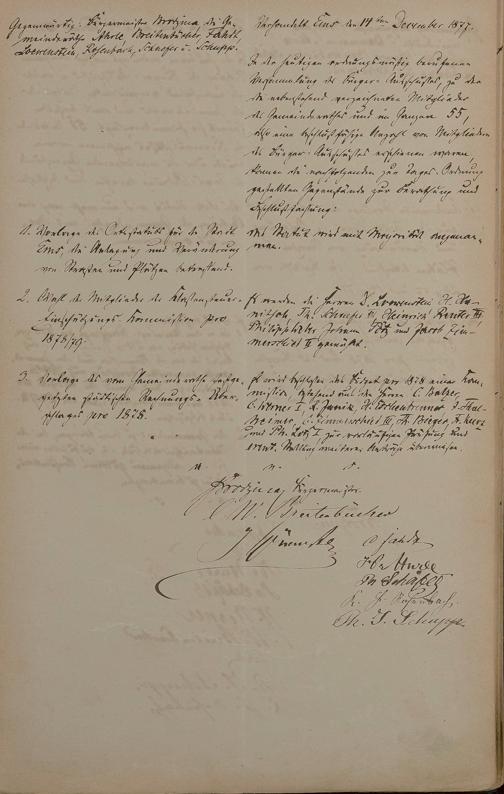 Gegenwärtig: Bürgermeister Brodzina die Ge-
meinderäthe Thole, Breitenbücher, Fahdt
Loewenstein, Rosenbach, Schaefer u. Schupp.
Verhandelt Ems den 14ten December 1877.
In der heutigen ordnungsmäßig berufenen
Versammlung des Bürger-Ausschusses, zu der
die nebenstehend verzeichneten Mitglieder
des Gemeinderathes und im Ganzen 55,
also eine beschlußfähige Anzahl von Mitgliedern
des Bürger-Ausschusses erschienen waren,
kamen die nachfolgenden zur Tages-Ordnung
gestellten Gegenstände zur Berathung und
Beschlußfassung:
1. Vorlage des Ortsstatuts für die Stadt
Ems, die Anlegung und Veränderung
von Straßen und Plätzen betreffend.
Das Statut wird mit Majorität angenom-
men.
2. Wahl der Mitglieder der Klassensteuer-
Einschätzungs-Kommission pro
1878/79.
Es werden die Herren Loewenstein
Heinrich Reuter III
Philipp Johann und Jacob Zim-
merschied II gewählt.
3. Vorlage des vom Gemeinderathe festge-
setzten städtischen Rechnungs-Ueber-
schlages pro 1878.
Es wird beschlossen das Budget pro 1878 einer Kom-
mission, bestehend aus den Herren C. Balzer,
Zimmerschied III,
und zur vorläufigen Prüfung und
event. Stellung weiterer Anträge überwiesen.
u. n. s.
Brodzina, Bürgermeister.
W. Breitenbücher
Fahdt
Schäfer
Rosenbach
Ph. J. Schupp